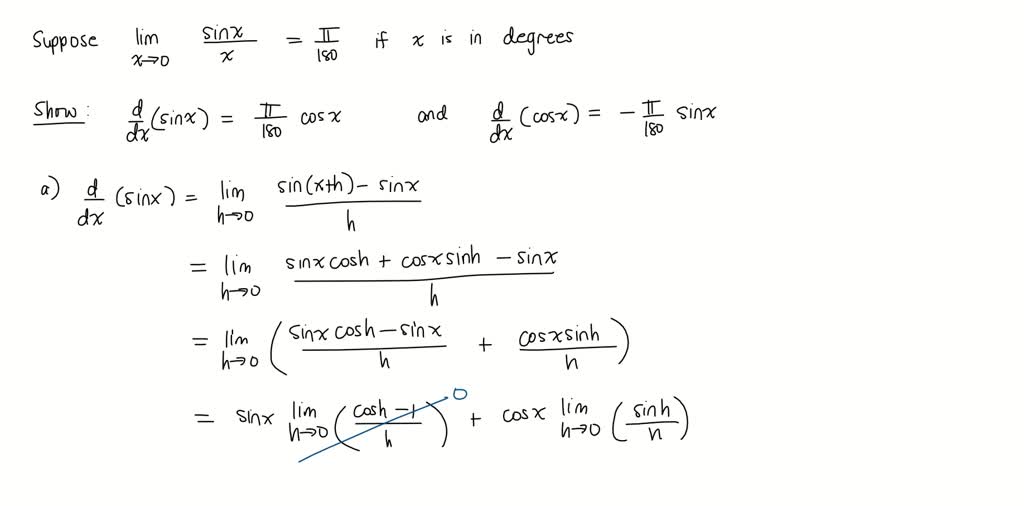 Suppose lim x→0 sinx/x = π/180 if x is in degrees
Show: d/dx (sinx) = π/180 cosx and d/dx (cosx) = - π/180 sinx
a) d/dx (sinx) = lim h→0 (sin(x+h) - sinx)/h
= lim h→0 (sinx cosh + cosx sinh - sinx)/h
= lim h→0 ( (sinx cosh - sinx)/h + (cosx sinh)/h )
= sinx lim h→0 ( (cosh - 1)/h ) 0 + cosx lim h→0 ( sinh/h )